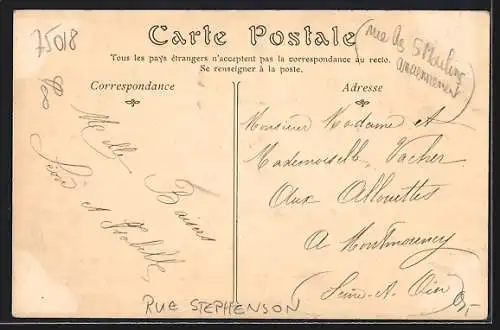 75018
Carte Postale
(rue des 5 Moulins
anciennement)
Tous les pays étrangers n'acceptent pas la correspondance au recto.
Se renseigner à la poste.
Correspondance
Adresse
Mille Baisers
et Isabelle
Monsieur Madame et
Mademoiselle Vacher
Aux Allouettes
A Montmorency
Seine-et-Oise
RUE STEPHENSON